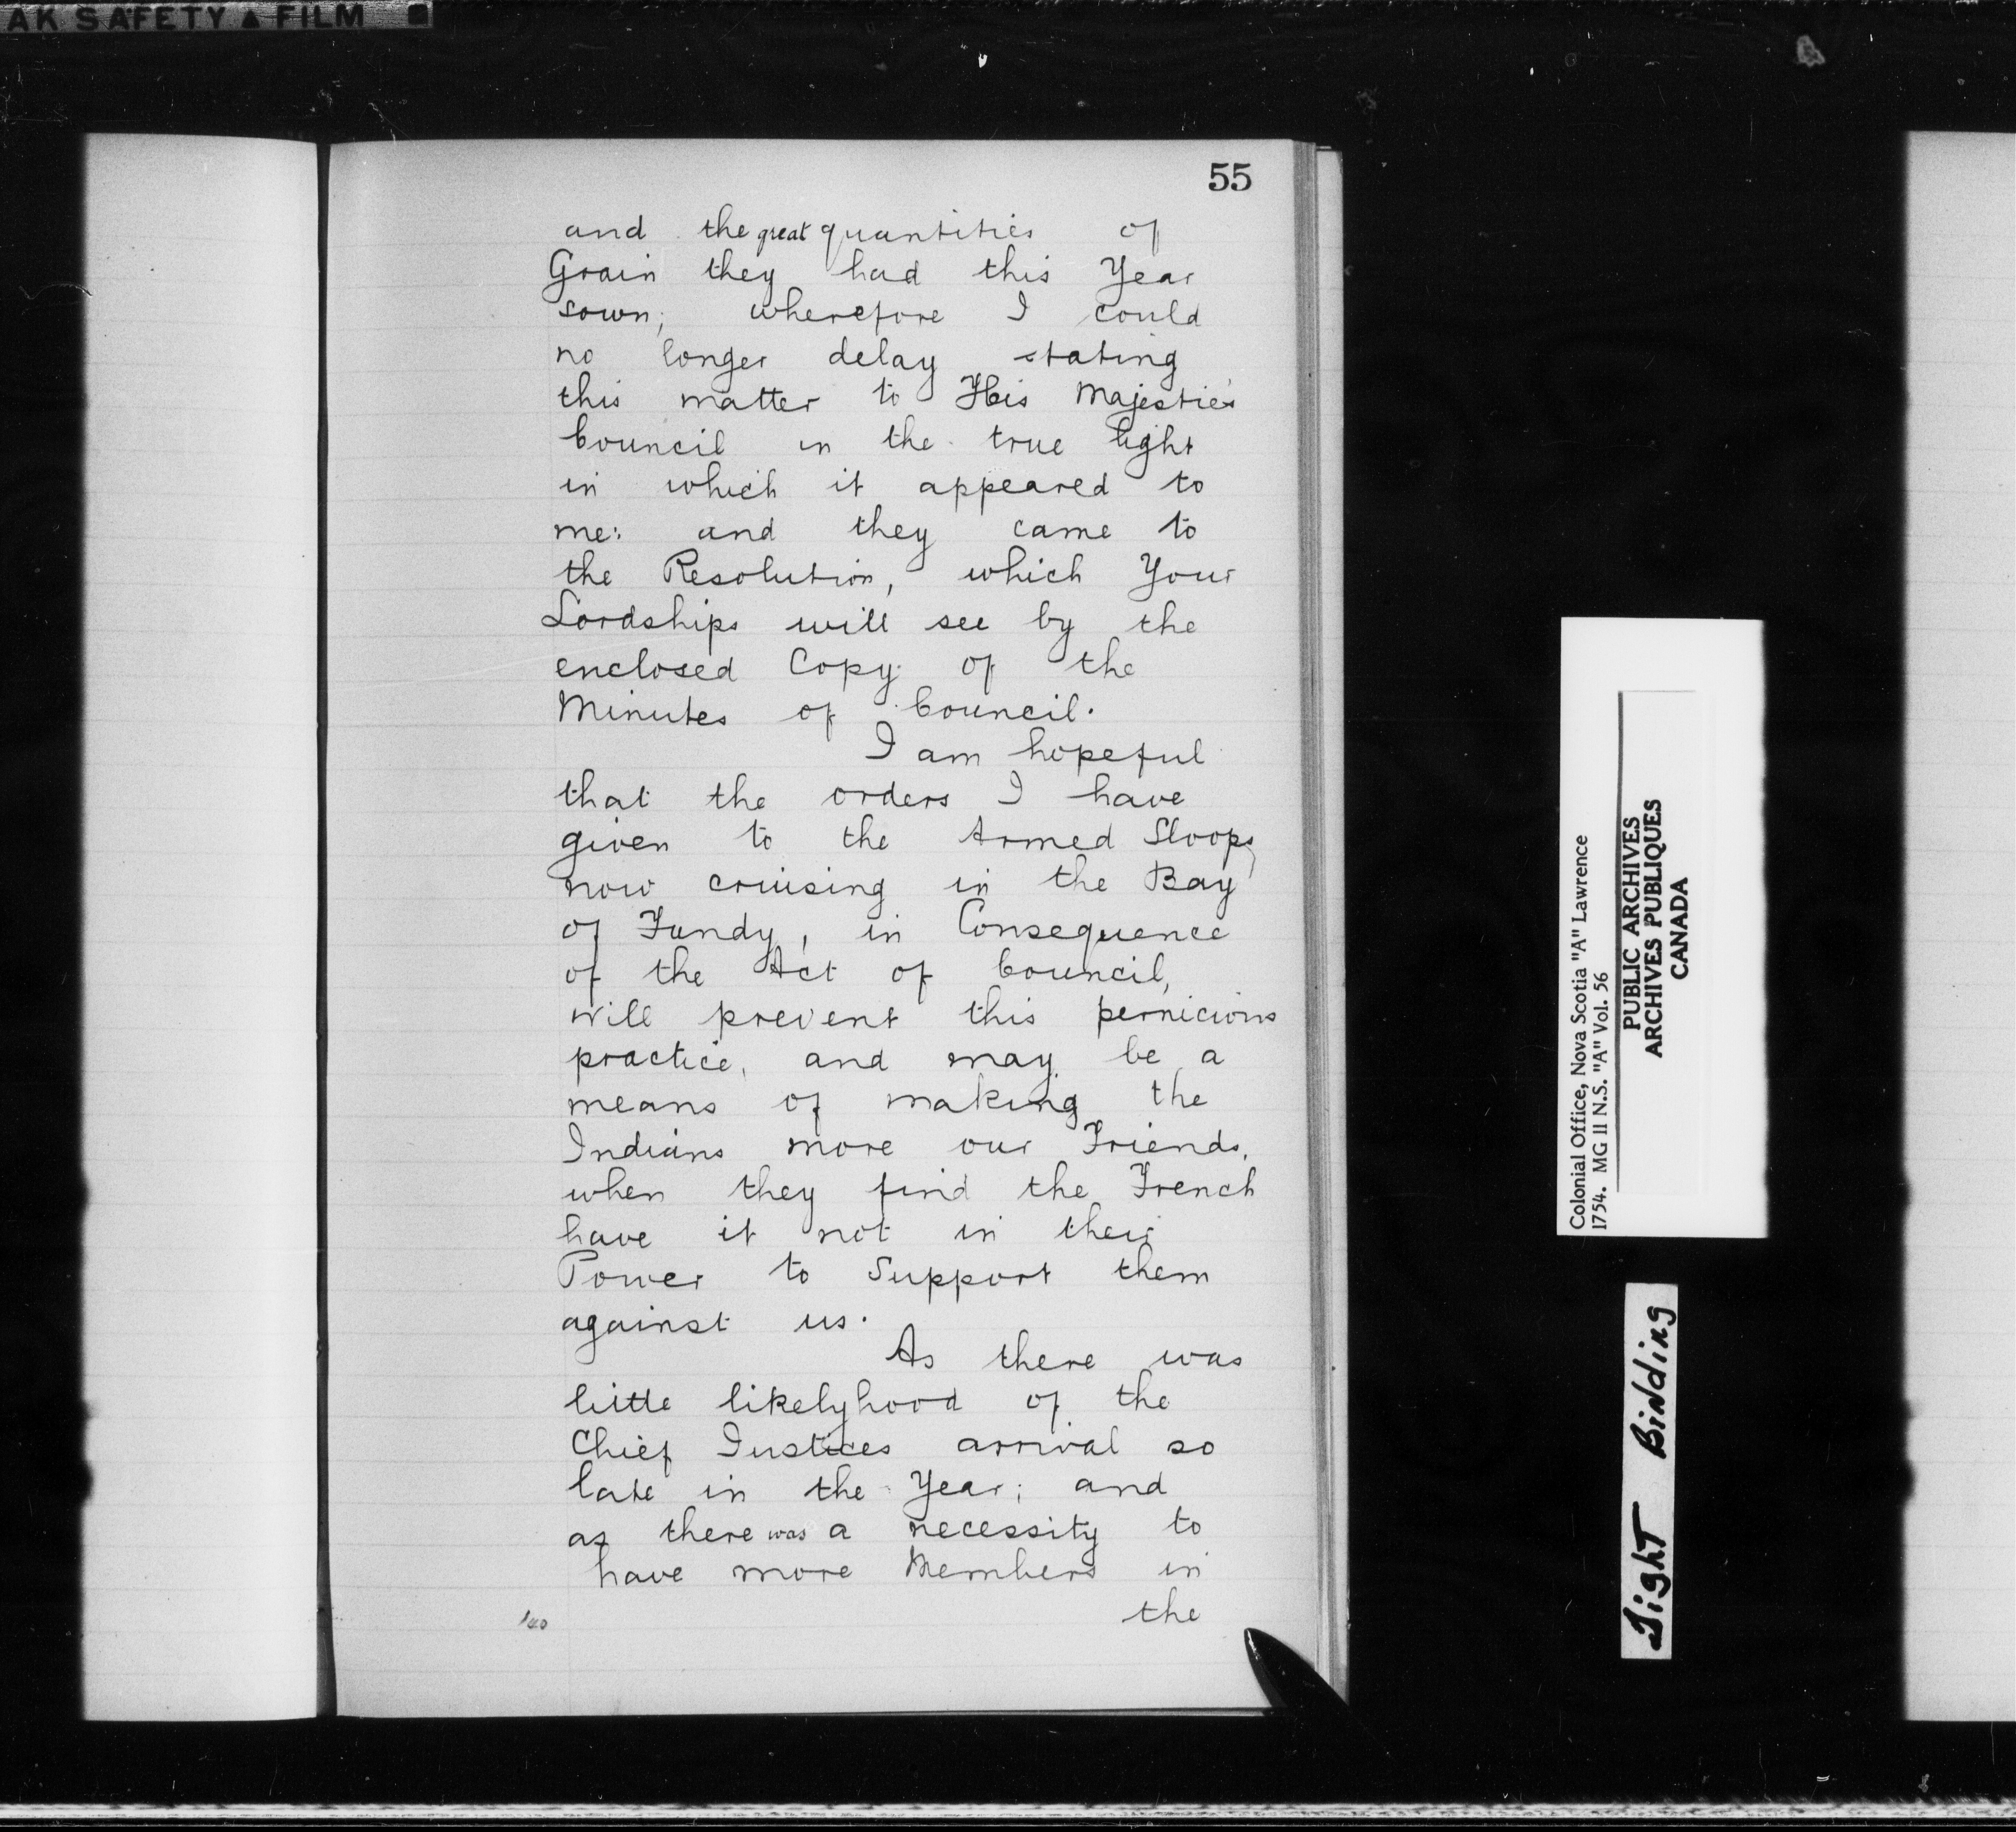 AK SAFETY ▲ FILM
55
and the great quantities of
Grain they had this Year
sown; wherefore I could
no longer delay stating
this matter to His Majestie's
Council in the true light
in which it appeared to
me: and they came to
the Resolution, which Your
Lordships will see by the
enclosed Copy of the
Minutes of Council.
I am hopeful
that the orders I have
given to the Armed Sloops,
now cruising in the Bay
of Fundy, in Consequence
of the Act of Council,
will prevent this pernicious
practice, and may be a
means of making the
Indians more our Friends,
when they find the French
have it not in their
Power to Support them
against us.
As there was
little likelyhood of the
Chief Justices arrival so
late in the Year; and
as there was a necessity to
have more Members in
the
140
Colonial Office, Nova Scotia "A" Lawrence
1754. MG 11 N.S. "A" Vol. 56
PUBLIC ARCHIVES
ARCHIVES PUBLIQUES
CANADA
Tight Binding